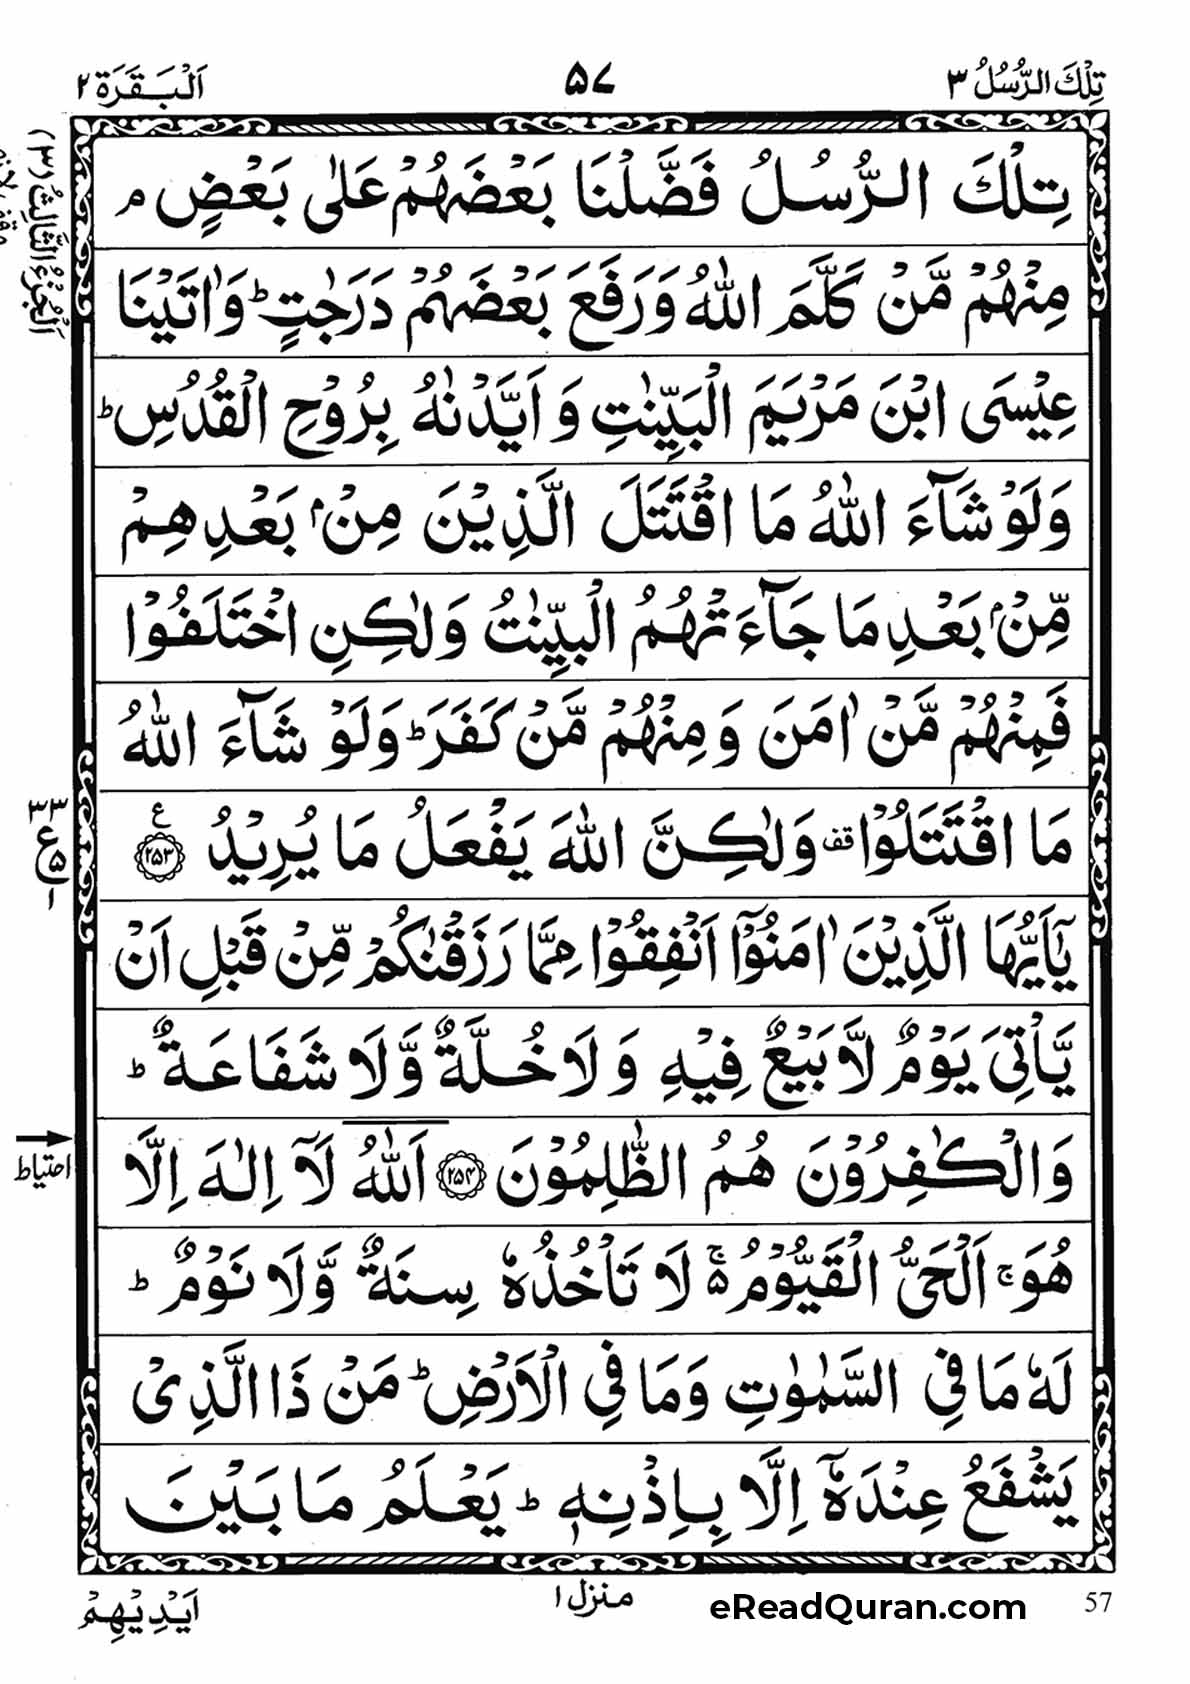 تِلْكَ الرُّسُلُ ٣
٥٧
اَلْبَقَرَة ٢
تِلْكَ الرُّسُلُ فَضَّلْنَا بَعْضَهُمْ عَلٰى بَعْضٍ ۘ
مِنْهُمْ مَّنْ كَلَّمَ اللّٰهُ وَرَفَعَ بَعْضَهُمْ دَرَجٰتٍ ؕ وَاٰتَيْنَا
عِيْسَى ابْنَ مَرْيَمَ الْبَيِّنٰتِ وَ اَيَّدْنٰهُ بِرُوْحِ الْقُدُسِ ؕ
وَلَوْ شَآءَ اللّٰهُ مَا اقْتَتَلَ الَّذِيْنَ مِنْۢ بَعْدِهِمْ
مِّنْۢ بَعْدِ مَا جَآءَتْهُمُ الْبَيِّنٰتُ وَلٰكِنِ اخْتَلَفُوْا
فَمِنْهُمْ مَّنْ اٰمَنَ وَ مِنْهُمْ مَّنْ كَفَرَ ؕ وَلَوْ شَآءَ اللّٰهُ
مَا اقْتَتَلُوْا قف وَلٰكِنَّ اللّٰهَ يَفْعَلُ مَا يُرِيْدُ ﴿٢٥٣﴾ ع
يٰۤاَيُّهَا الَّذِيْنَ اٰمَنُوْۤا اَنْفِقُوْا مِمَّا رَزَقْنٰكُمْ مِّنْ قَبْلِ اَنْ
يَّاْتِىَ يَوْمٌ لَّا بَيْعٌ فِيْهِ وَلَا خُلَّةٌ وَّلَا شَفَاعَةٌ ؕ
وَالْكٰفِرُوْنَ هُمُ الظّٰلِمُوْنَ ﴿٢٥٤﴾ اَللّٰهُ لَاۤ اِلٰهَ اِلَّا
هُوَ ۚ اَلْحَىُّ الْقَيُّوْمُ ۚ۵ لَا تَاْخُذُهٗ سِنَةٌ وَّلَا نَوْمٌ ؕ
لَهٗ مَا فِى السَّمٰوٰتِ وَمَا فِى الْاَرْضِ ؕ مَنْ ذَا الَّذِىْ
يَشْفَعُ عِنْدَهٗۤ اِلَّا بِاِذْنِهٖ ؕ يَعْلَمُ مَا بَيْنَ
اَلْجُزْءُ الثَّالِثُ (٣)
٣٣
ع
٥
١
احتیاط
اَيْدِيْهِمْ
منزل ١
eReadQuran.com
57